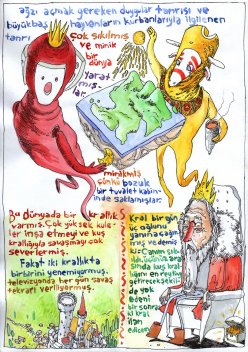 ağzı açmak gereken duygular tanrısı ve
büyükbaş hayvanların kurbanlarıyla ilgilenen
tanrı
çok sıkılmış
ve minik
bir
dünya
yarat
mış
lar
minikmiş
çünkü bozuk
bir tuvalet kabinin
de saklamışlar.
Bu dünyada bir krallık
varmış. Çok yüksek kule
ler inşa etmeyi ve kuş
krallığıyla savaşmayı çok
severlermiş.
Fakat iki krallıkta
birbirini yenemiyormuş.
televizyonda her gün savaş
tekrarı veriliyormuş.
Kral bir gün
üç oğlunu
yanına çağır
mış ve demiş
ki: Canım
sıkı
sında kuş kral
lığını en
getirecek şekil
de yok
edeni
bir sonra
ki kral
ilan
edicem